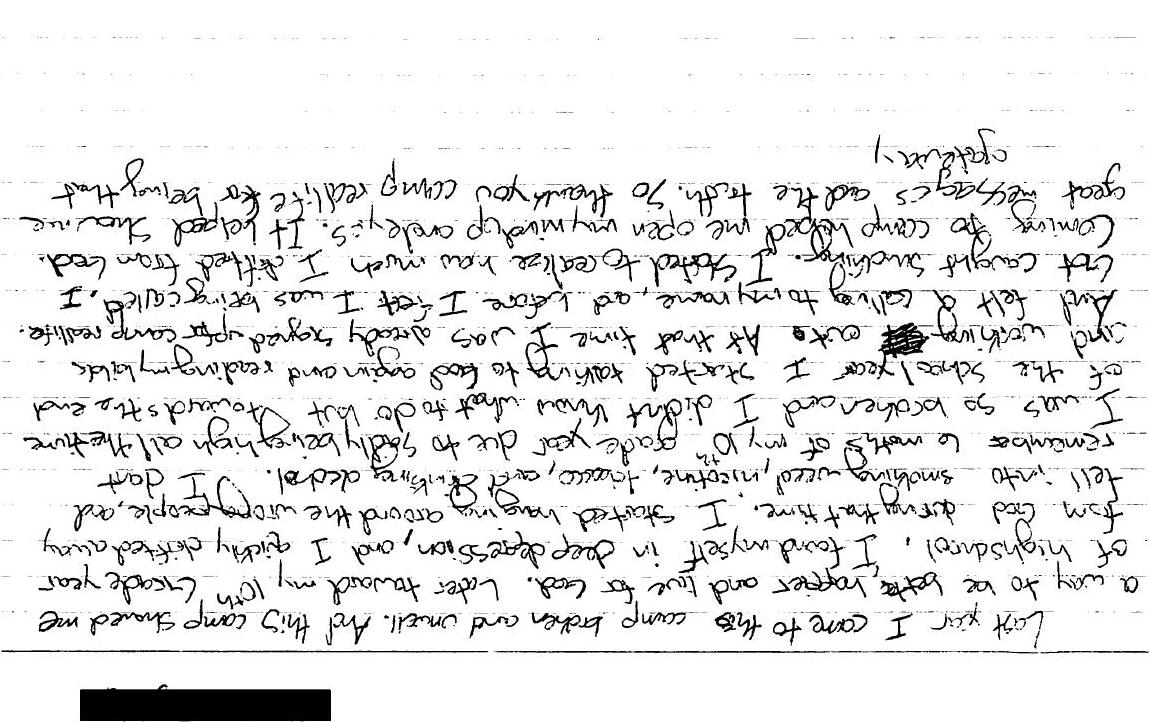 Last year I came to this camp broken and unwell. And this camp showed me
a way to be better, happier, and live for God. Later toward my 10th Grade year
of highschool, I found myself in deep depression, and I quickly drifted away
from God during that time. I started hanging around the wrong people, and
fell into smoking weed, nicotine, tobacco, and drinking alcohol. I dont
remember 6 moths of my 10th grade year due to being high all the time
I was so broken and I didnt know what to do but towards the end
of the school year I started talking to God again and reading my bible
and working out. At that time I was already signed up for camp reallife.
And felt a calling to my name, and before I felt I was being called, I
Got caught smoking. I started to realize how much I drifted from God.
Coming to camp helped me open my mind up and eyes. It helped show me
great messages and the truth. So thank you camp reallife for being that
gateway